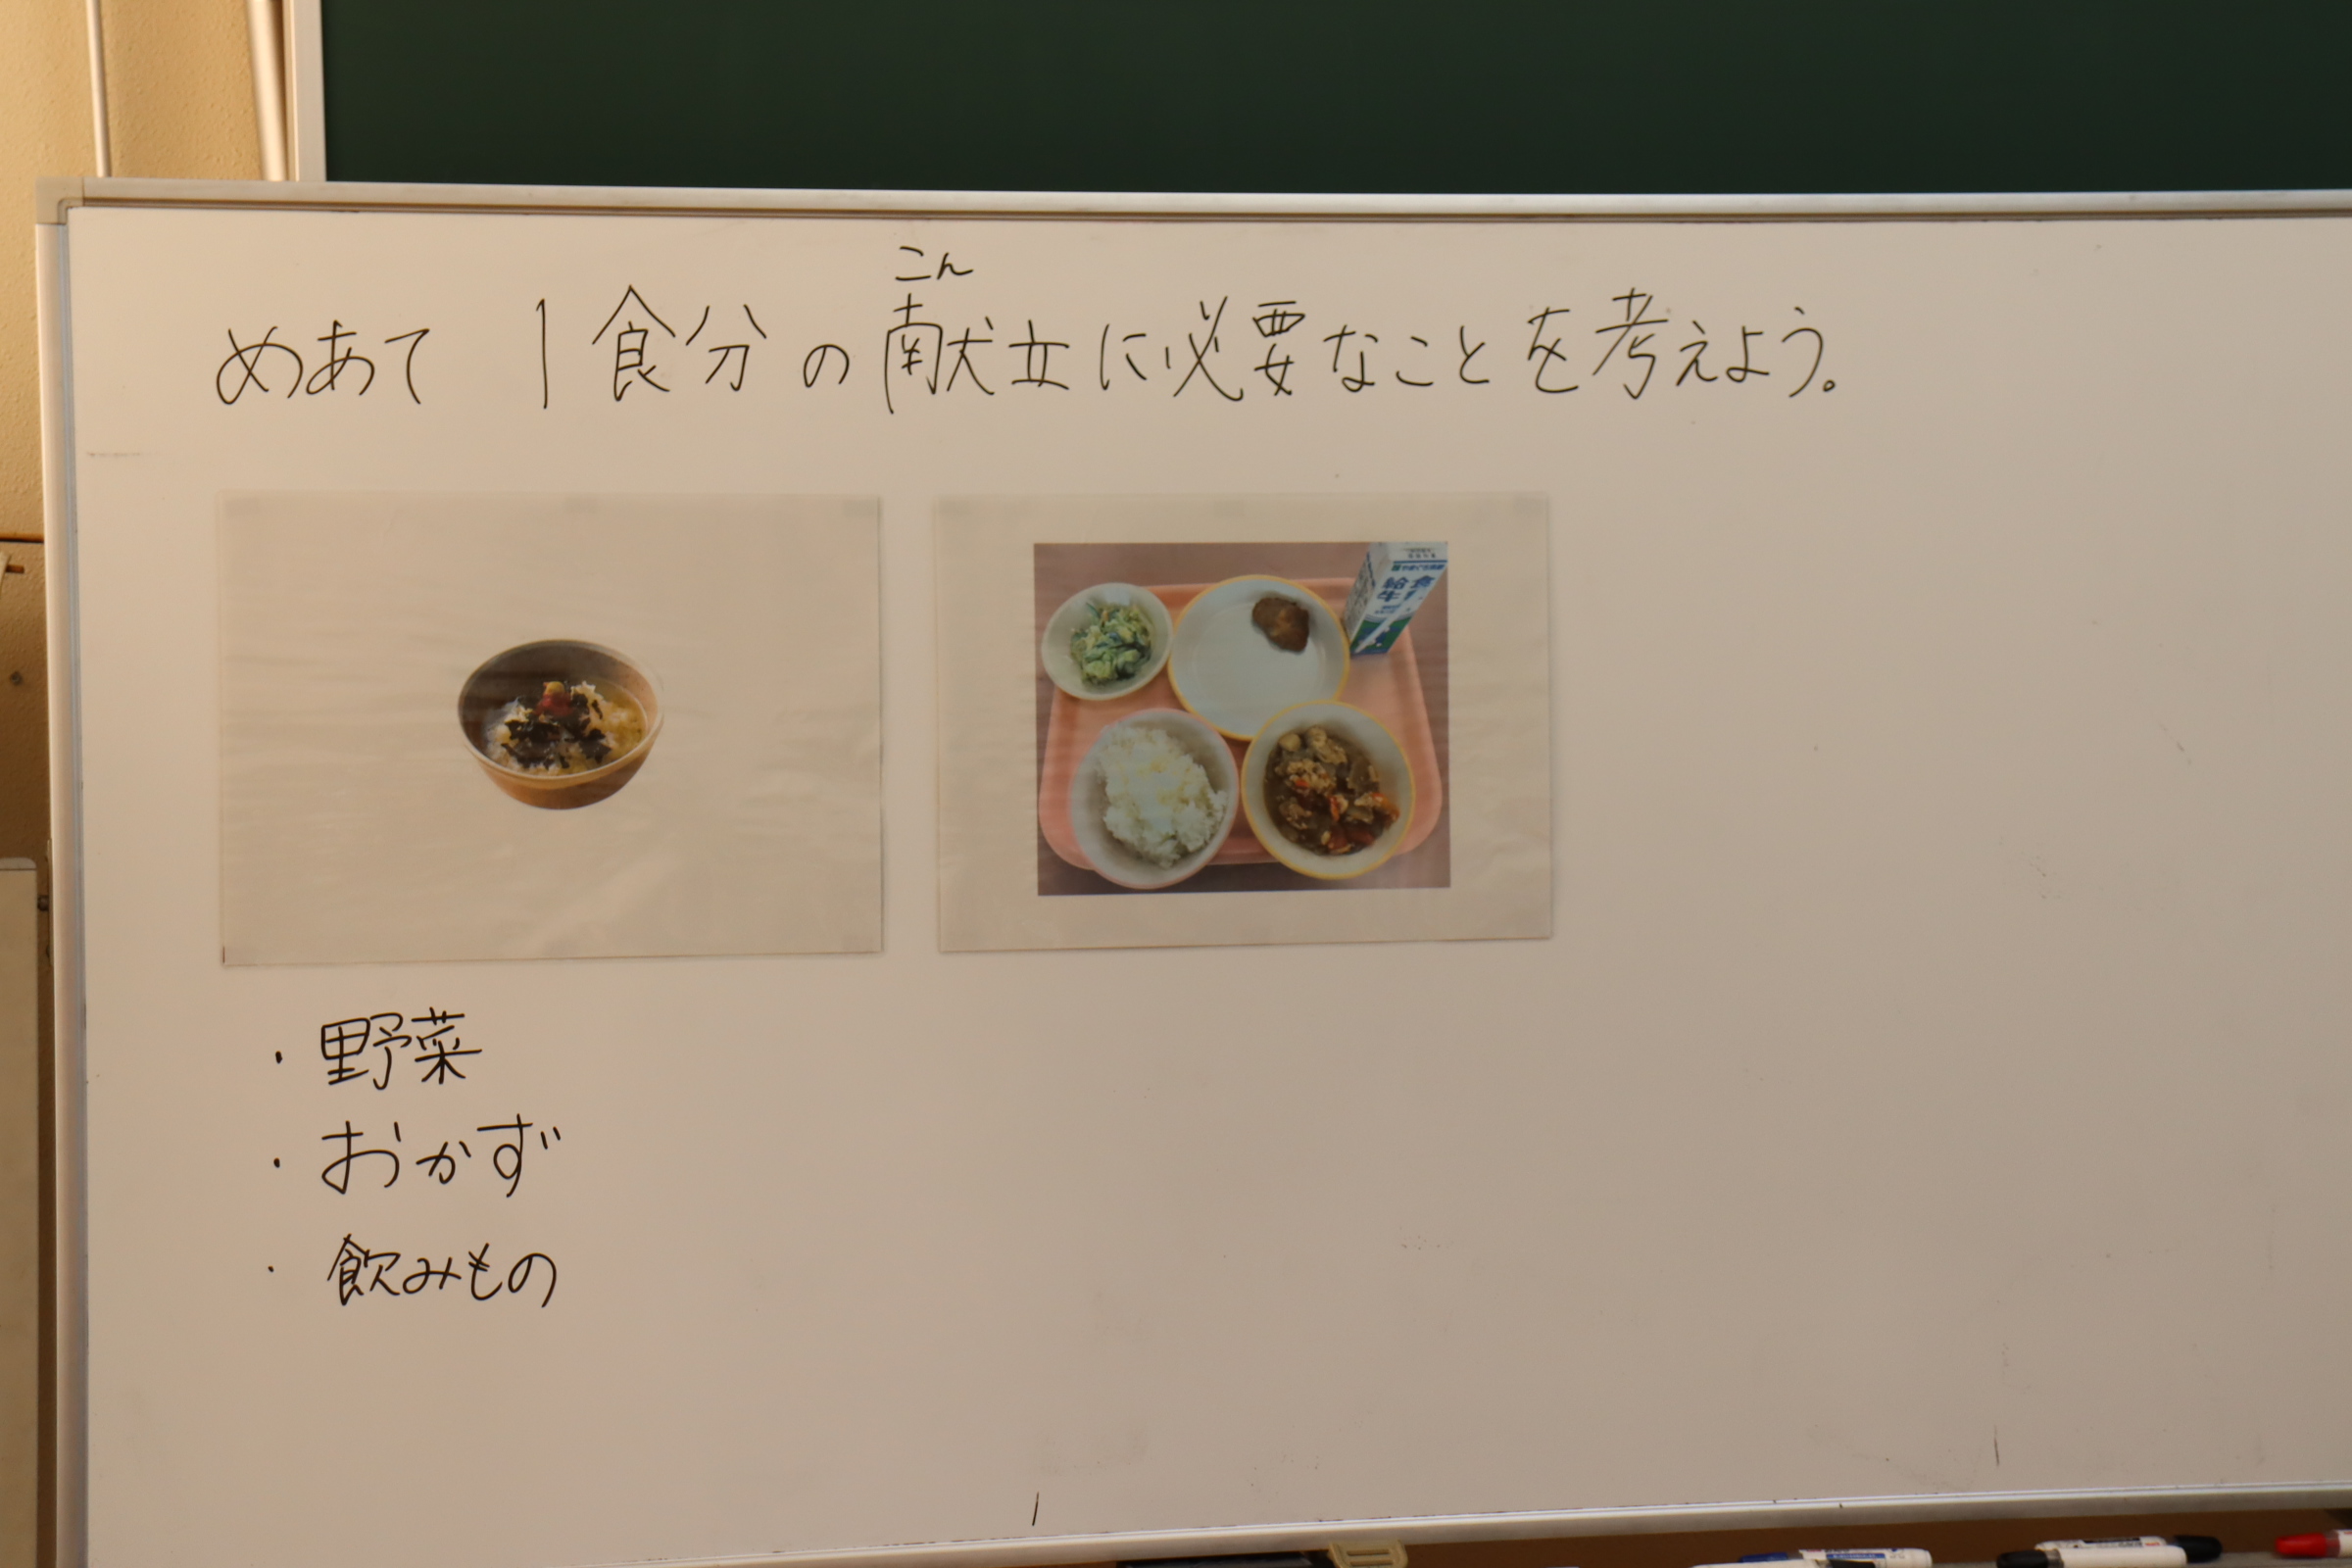 めあて 1食分の献立に必要なことを考えよう。
こん
給食
牛乳
・野菜
・おかず
・飲みもの